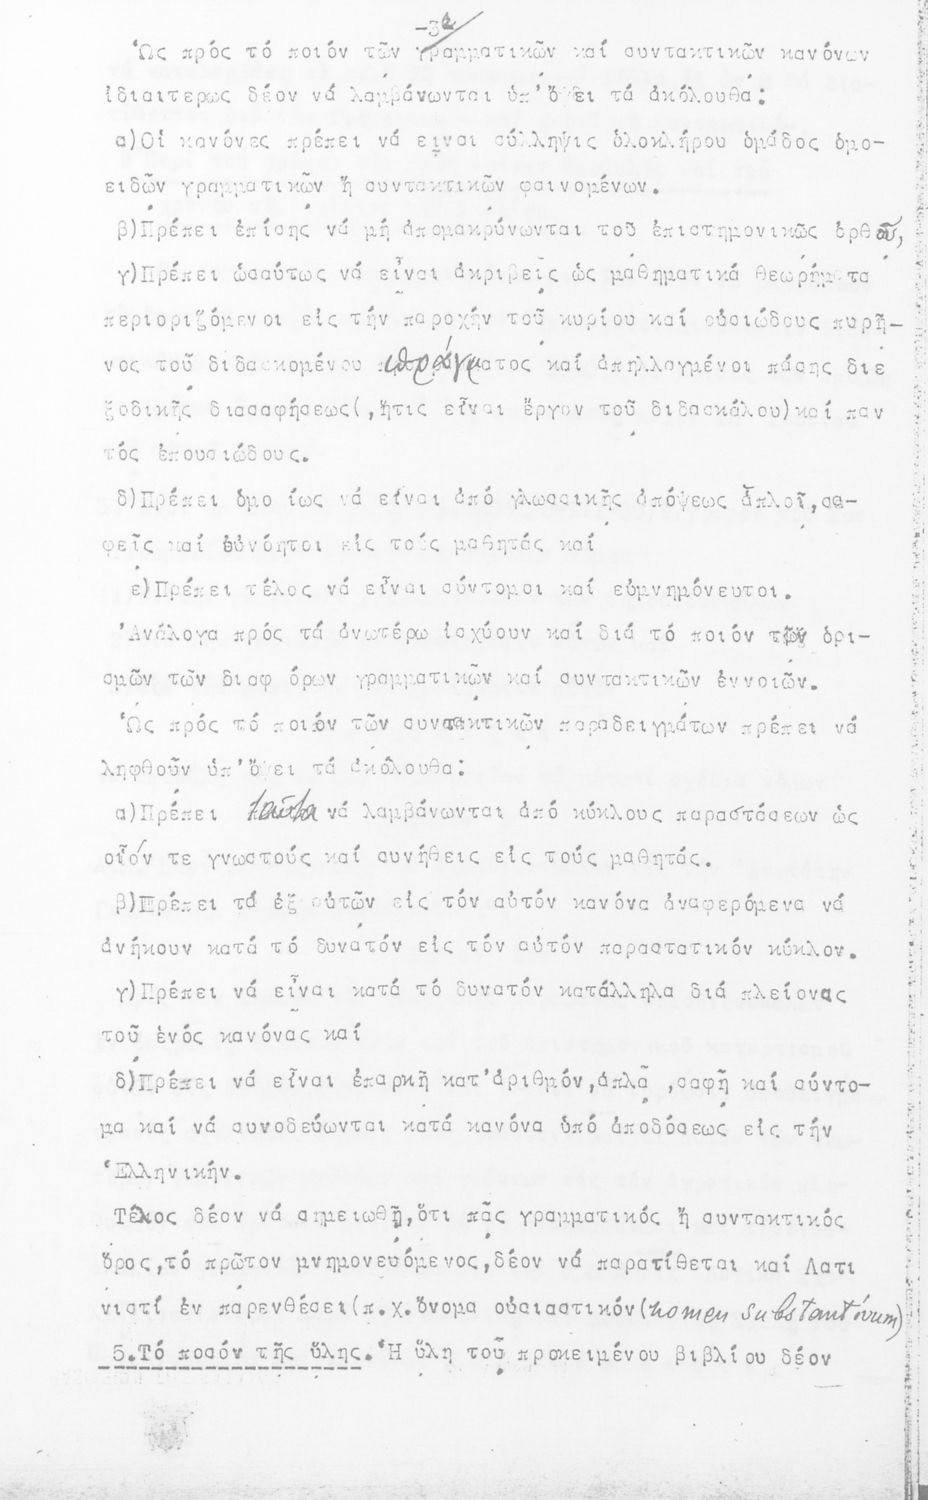 -32/
Ὡς πρός τό ποιόν τῶν γραμματικῶν καί συντακτικῶν κανόνων
ἰδιαιτερως δέον νά λαμβάνωνται ὑπ' ὄψει τά ἀκόλουθα:
α)Οἱ κανόνες πρέπει νά εἶναι σύλληψις ὁλοκλήρου ὁμάδος ὁμο-
ειδῶν γραμματικῶν ἤ συντακτικῶν φαινομένων.
β)Πρέπει ἐπίσης νά μή ἀπομακρύνωνται τοῦ ἐπιστημονικῶς ὀρθοῦ,
γ)Πρέπει ὡσαύτως νά εἶναι ἀκριβεῖς ὡς μαθηματικά θεωρήματα
περιοριζόμενοι εἰς τήν παροχήν τοῦ κυρίου καί οὐσιώδους πυρῆ-
νος τοῦ διδασκομένου πράγματος καί ἀπηλλαγμένοι πάσης διε
ξοδικῆς διασαφήσεως(,ἥτις εἶναι ἔργον τοῦ διδασκάλου)καί παν
τός ἐπουσιώδους.
δ)Πρέπει ὁμο ίως νά εἶναι ἀπό γλωσσικῆς ἀπόψεως ἁπλοῖ,σα-
φεῖς καί εὐνόητοι εἰς τούς μαθητάς καί
ε)Πρέπει τέλος νά εἶναι σύντομοι καί εὐμνημόνευτοι.
Ἀνάλογα πρός τά ἀνωτέρω ἰσχύουν καί διά τό ποιόν τῶν ὁρι-
σμῶν τῶν διαφ όρων γραμματικῶν καί συντακτικῶν ἐννοιῶν.
Ὡς πρός τό ποιόν τῶν συντακτικῶν παραδειγμάτων πρέπει νά
ληφθοῦν ὑπ' ὄψει τά ἀκόλουθα:
α)Πρέπει ταῦτα νά λαμβάνωνται ἀπό κύκλους παραστάσεων ὡς
οἷόν τε γνωστούς καί συνήθεις εἰς τούς μαθητάς.
β)Πρέπει τά ἐξ αὐτῶν εἰς τόν αὐτόν κανόνα ἀναφερόμενα νά
ἀνήκουν κατά τό δυνατόν εἰς τόν αὐτόν παραστατικόν κύκλον.
γ)Πρέπει νά εἶναι κατά τό δυνατόν κατάλληλα διά πλείονας
τοῦ ἑνός κανόνας καί
δ)Πρέπει νά εἶναι ἐπαρκῆ κατ'ἀριθμόν,ἁπλᾶ ,σαφῆ καί σύντο-
μα καί νά συνοδεύωνται κατά κανόνα ὑπό ἀποδόσεως εἰς τήν
Ἑλληνικήν.
Τέλος δέον νά σημειωθῇ,ὅτι πᾶς γραμματικός ἤ συντακτικός
ὅρος,τό πρῶτον μνημονευόμενος,δέον νά παρατίθεται καί Λατι
νιστί ἐν παρενθέσει(π.χ.ὄνομα οὐσιαστικόν(nomen substantivum)
5.Τό ποσόν τῆς ὕλης.Ἡ ὕλη τοῦ προκειμένου βιβλίου δέον